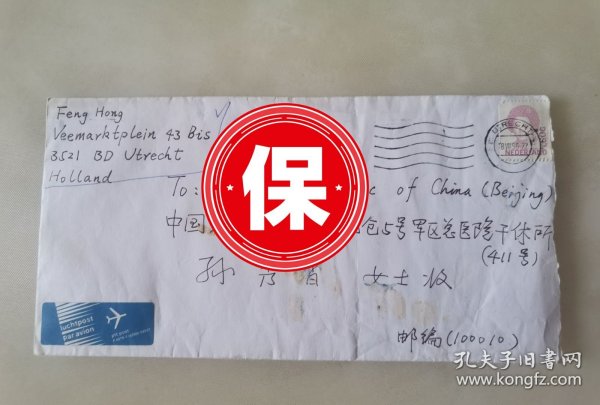 Feng Hong
Veemarktplein 43 Bis
3521 BD Utrecht
Holland
UTRECHT
NEDERLAND
保
To: of China (Beijing)
中国 5号军区总医院干休所
(411号)
孙 女士收
luchtpost
par avion
邮编(100010)
孔夫子旧书网
www.kongfz.com